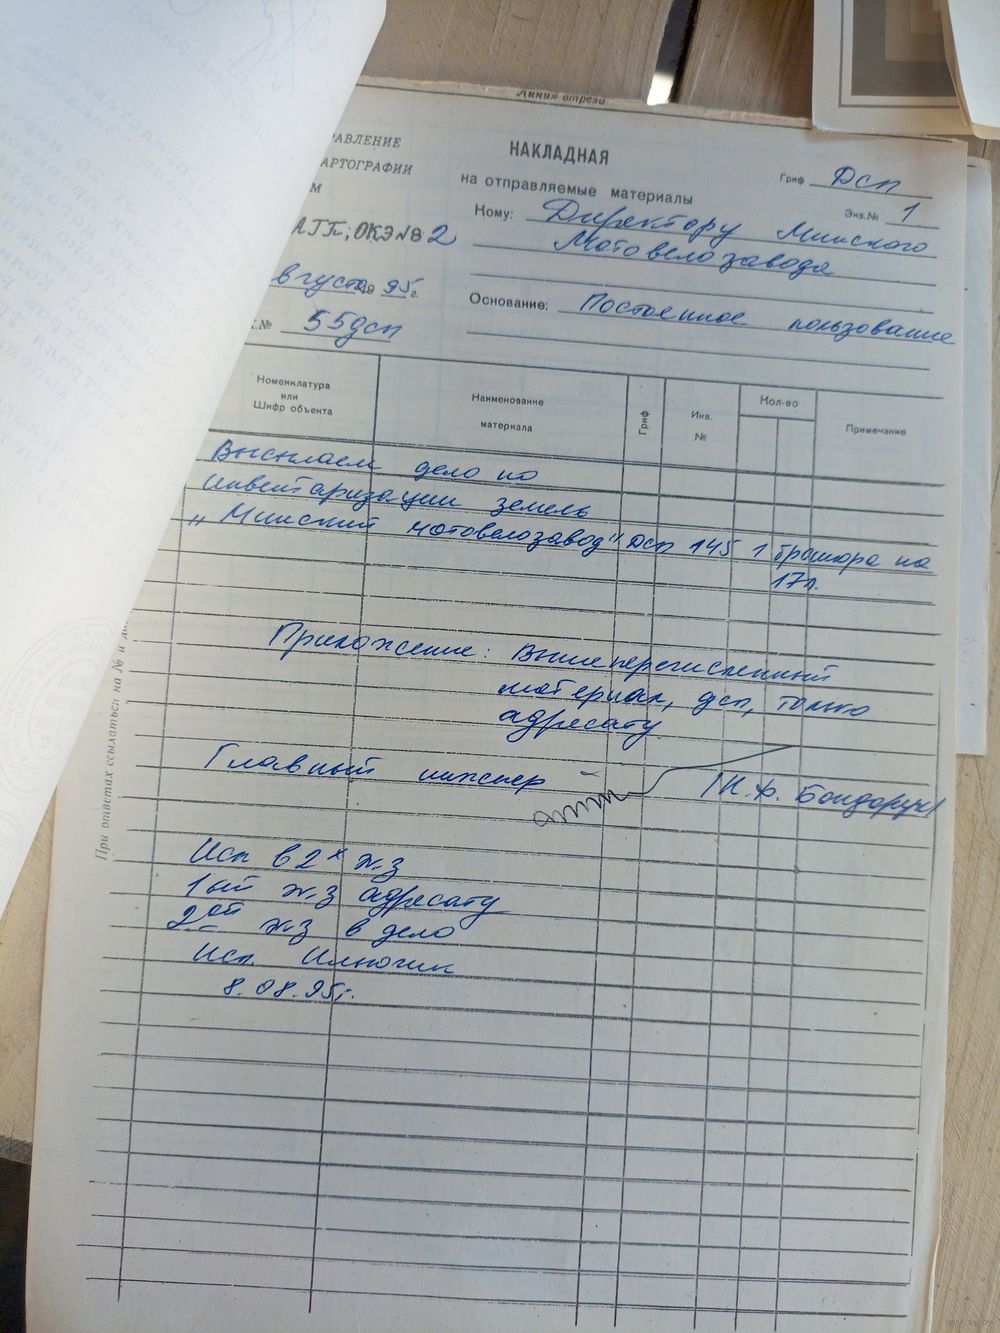 Линия отреза
РАВЛЕНИЕ
АРТОГРАФИИ
М
АГП; ОКЭ №82
вгуста 19 95 г.
.№ 55дсп
НАКЛАДНАЯ
на отправляемые материалы
Гриф Дсп
Экз.№ 1
Кому: Директору Минского
Мотовелозавода
Основание: Постоенное пользование
Номенклатура
или
Шифр объекта
Наименование
материала
Гриф
Инв.
№
Кол-во
Примечание
Высылаем дело по
инвентаризации земель
„Минский мотовелозавод" Дсп 145 1 брошюра на
17л.
Приложение: Вышеперечисленный
материал, дсп, только
адресату
Главный инженер /К.Ф. Бондарук/
Исп в 2х экз
1ый экз адресату
2ой экз в дело
Исп. Илючик
8.08.95г.
При ответах ссылаться на № и да
www.ay.by